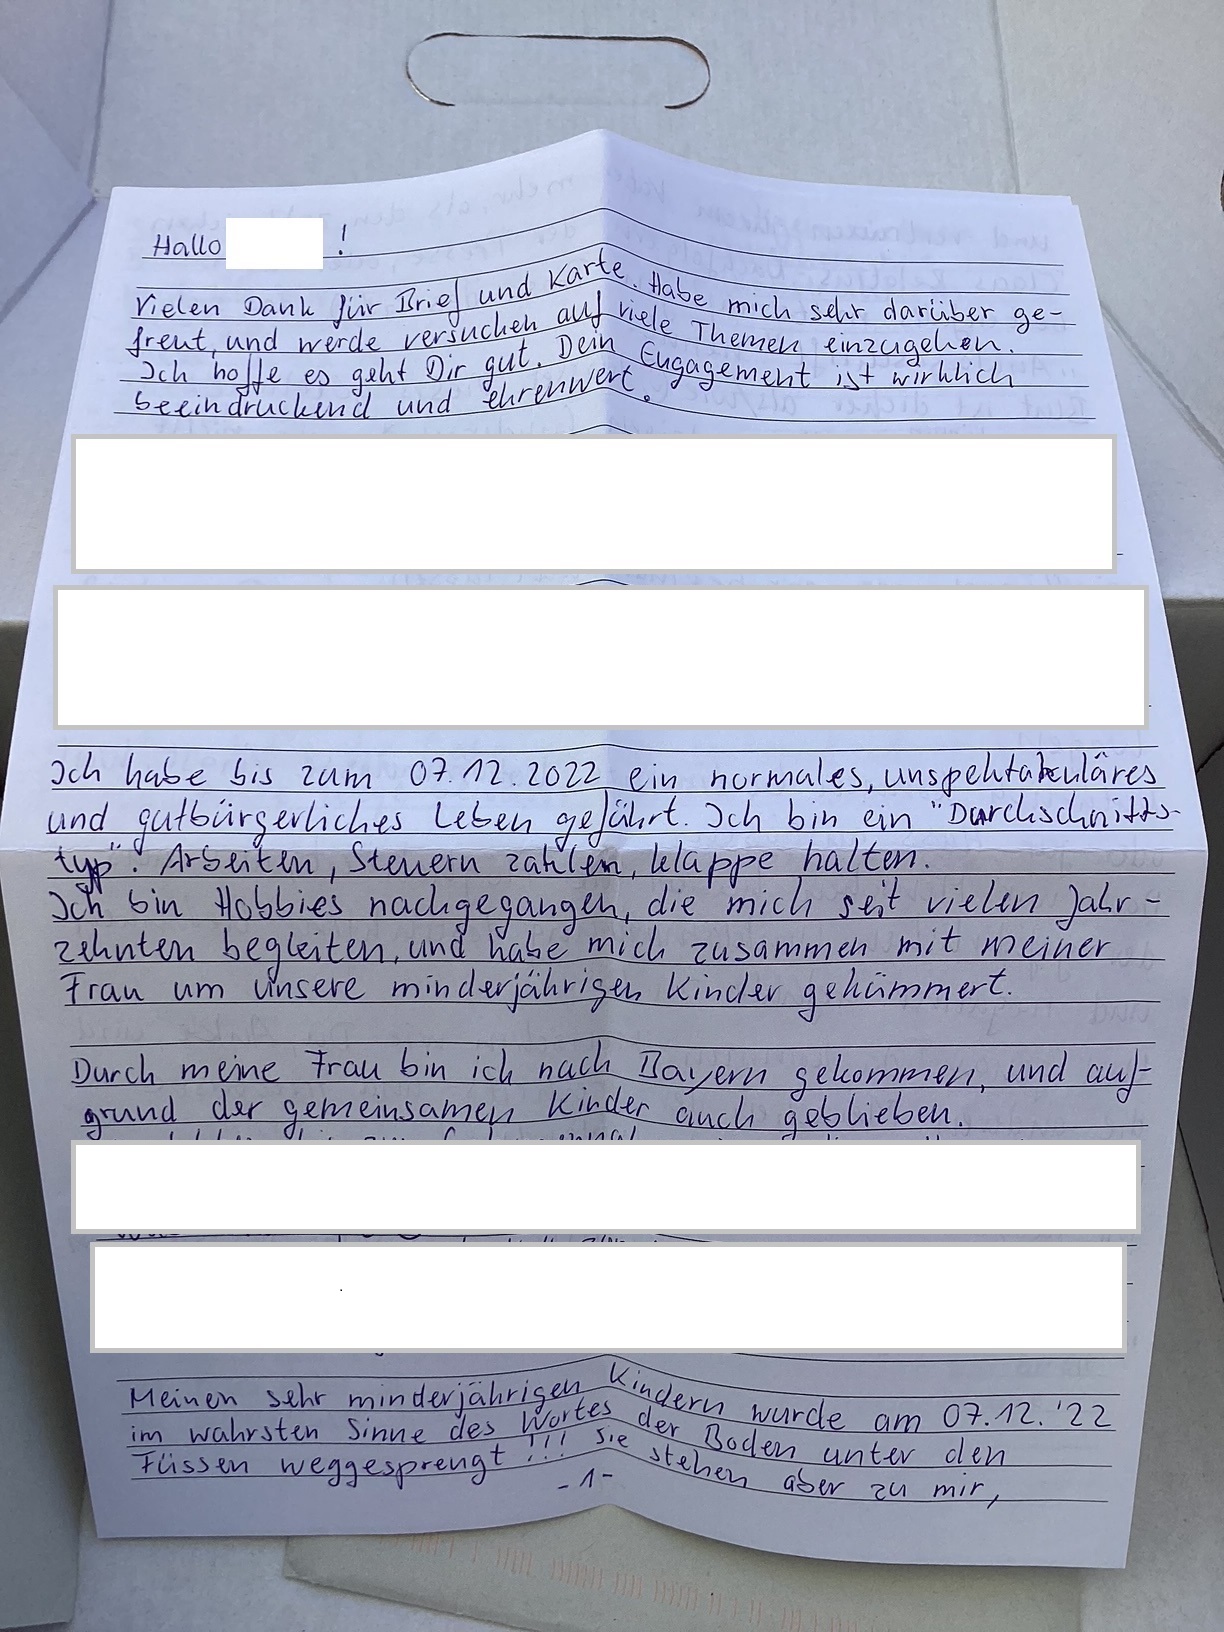 Hallo !
Vielen Dank für Brief und Karte. Habe mich sehr darüber ge-
freut, und werde versuchen auf viele Themen einzugehen.
Ich hoffe es geht Dir gut. Dein Engagement ist wirklich
beeindruckend und ehrenwert.
Ich habe bis zum 07.12.2022 ein normales, unspektakuläres
und gutbürgerliches Leben geführt. Ich bin ein "Durchschnitts-
typ". Arbeiten, Steuern zahlen, klappe halten.
Ich bin Hobbies nachgegangen, die mich seit vielen Jahr-
zehnten begleiten, und habe mich zusammen mit meiner
Frau um unsere minderjährigen Kinder gekümmert.
Durch meine Frau bin ich nach Bayern gekommen, und auf-
grund der gemeinsamen Kinder auch geblieben.
Meinen sehr minderjährigen Kindern wurde am 07.12.'22
im wahrsten Sinne des Wortes der Boden unter den
Füssen weggesprengt!!! Sie stehen aber zu mir,
-1-